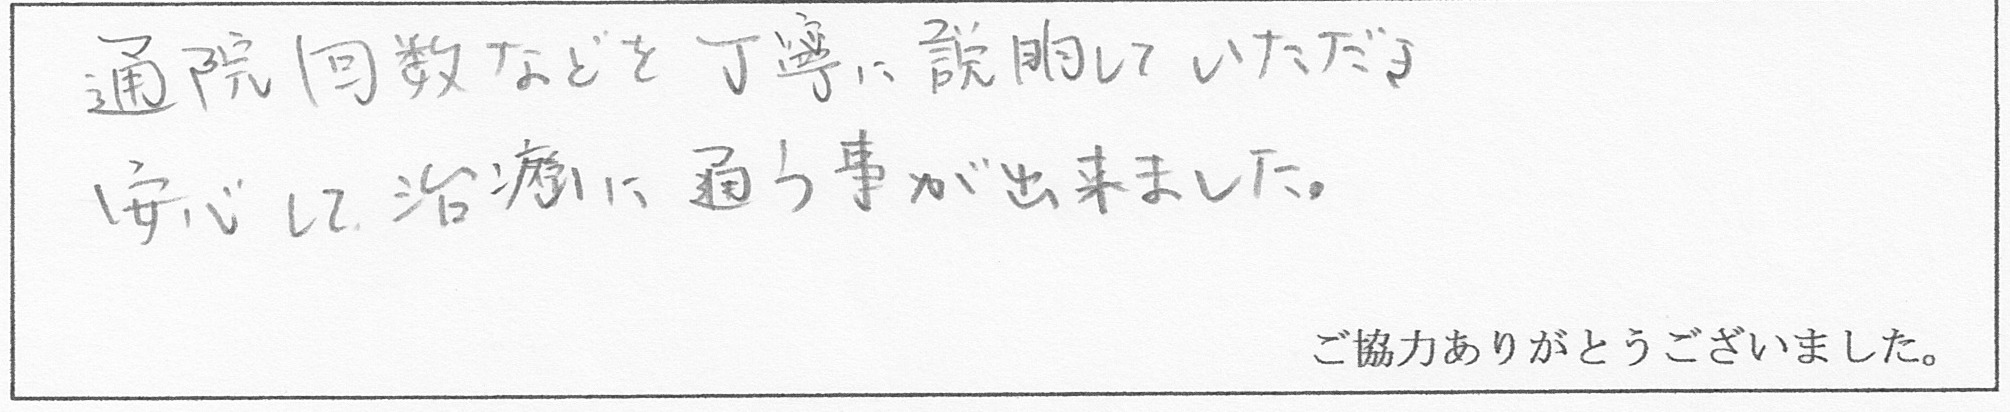 通院回数などを丁寧に説明していただき
安心して治療に通う事が出来ました。
ご協力ありがとうございました。